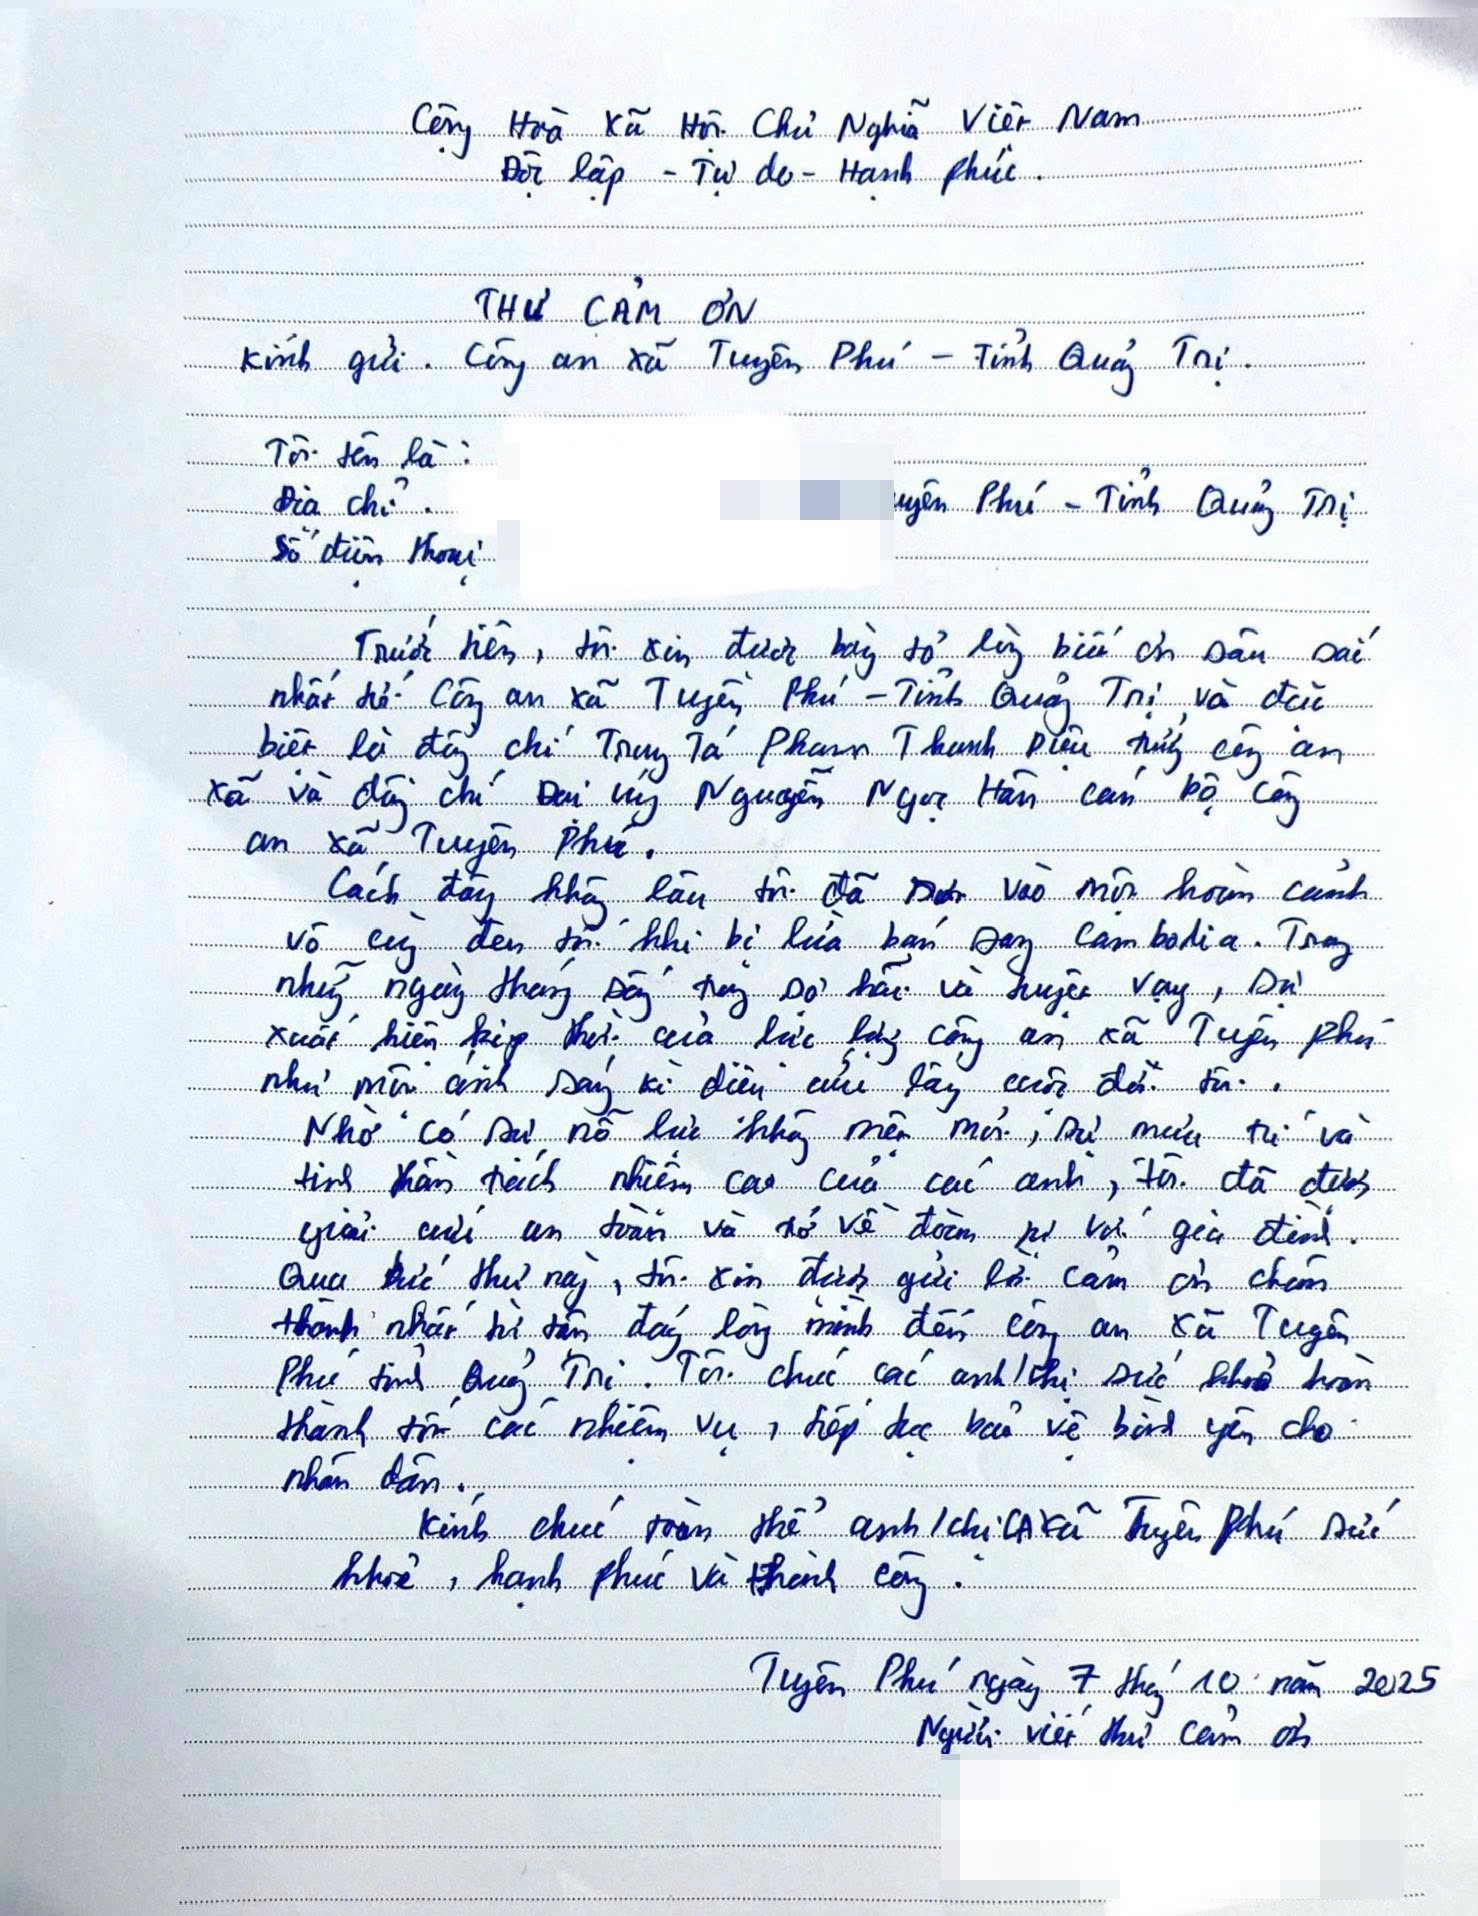 Cộng Hoà Xã Hội Chủ Nghĩa Việt Nam
Độc lập - Tự do - Hạnh phúc.
THƯ CẢM ƠN
Kính gửi. Công an xã Tuyên Phú - Tỉnh Quảng Trị.
Tôi tên là:
Địa chỉ. uyên Phú - Tỉnh Quảng Trị
Số điện thoại
Trước tiên, tôi xin được bày tỏ lòng biết ơn sâu sắc
nhất tới Công an xã Tuyên Phú - Tỉnh Quảng Trị, và đặc
biệt là đồng chí Trung Tá Phạm Thanh Diệu trưởng công an
xã và đồng chí Đại úy Nguyễn Ngọc Hân cán bộ công
an xã Tuyên Phú.
Cách đây không lâu tôi đã vào một hoàn cảnh
vô cùng đen tối khi bị lừa bán sang Cambodia. Trong
những ngày tháng sống trong sợ hãi và tuyệt vọng, sự
xuất hiện kịp thời của lực lượng công an xã Tuyên Phú
như một ánh sáng kì diệu cứu lấy cuộc đời tôi.
Nhờ có sự nỗ lực không mệt mỏi, sự mưu trí và
tinh thần trách nhiệm cao của các anh, tôi đã được
giải cứu an toàn và trở về đoàn tụ với gia đình.
Qua bức thư này, tôi xin được gửi lời cảm ơn chân
thành nhất từ tận đáy lòng mình đến công an xã Tuyên
Phú tỉnh Quảng Trị. Tôi chúc các anh/chị sức khoẻ hoàn
thành tốt các nhiệm vụ, tiếp tục bảo vệ bình yên cho
nhân dân.
Kính chúc toàn thể anh/chị CA xã Tuyên Phú sức
khoẻ, hạnh phúc và thành công.
Tuyên Phú ngày 7 tháng 10 năm 2025
Người viết thư cảm ơn